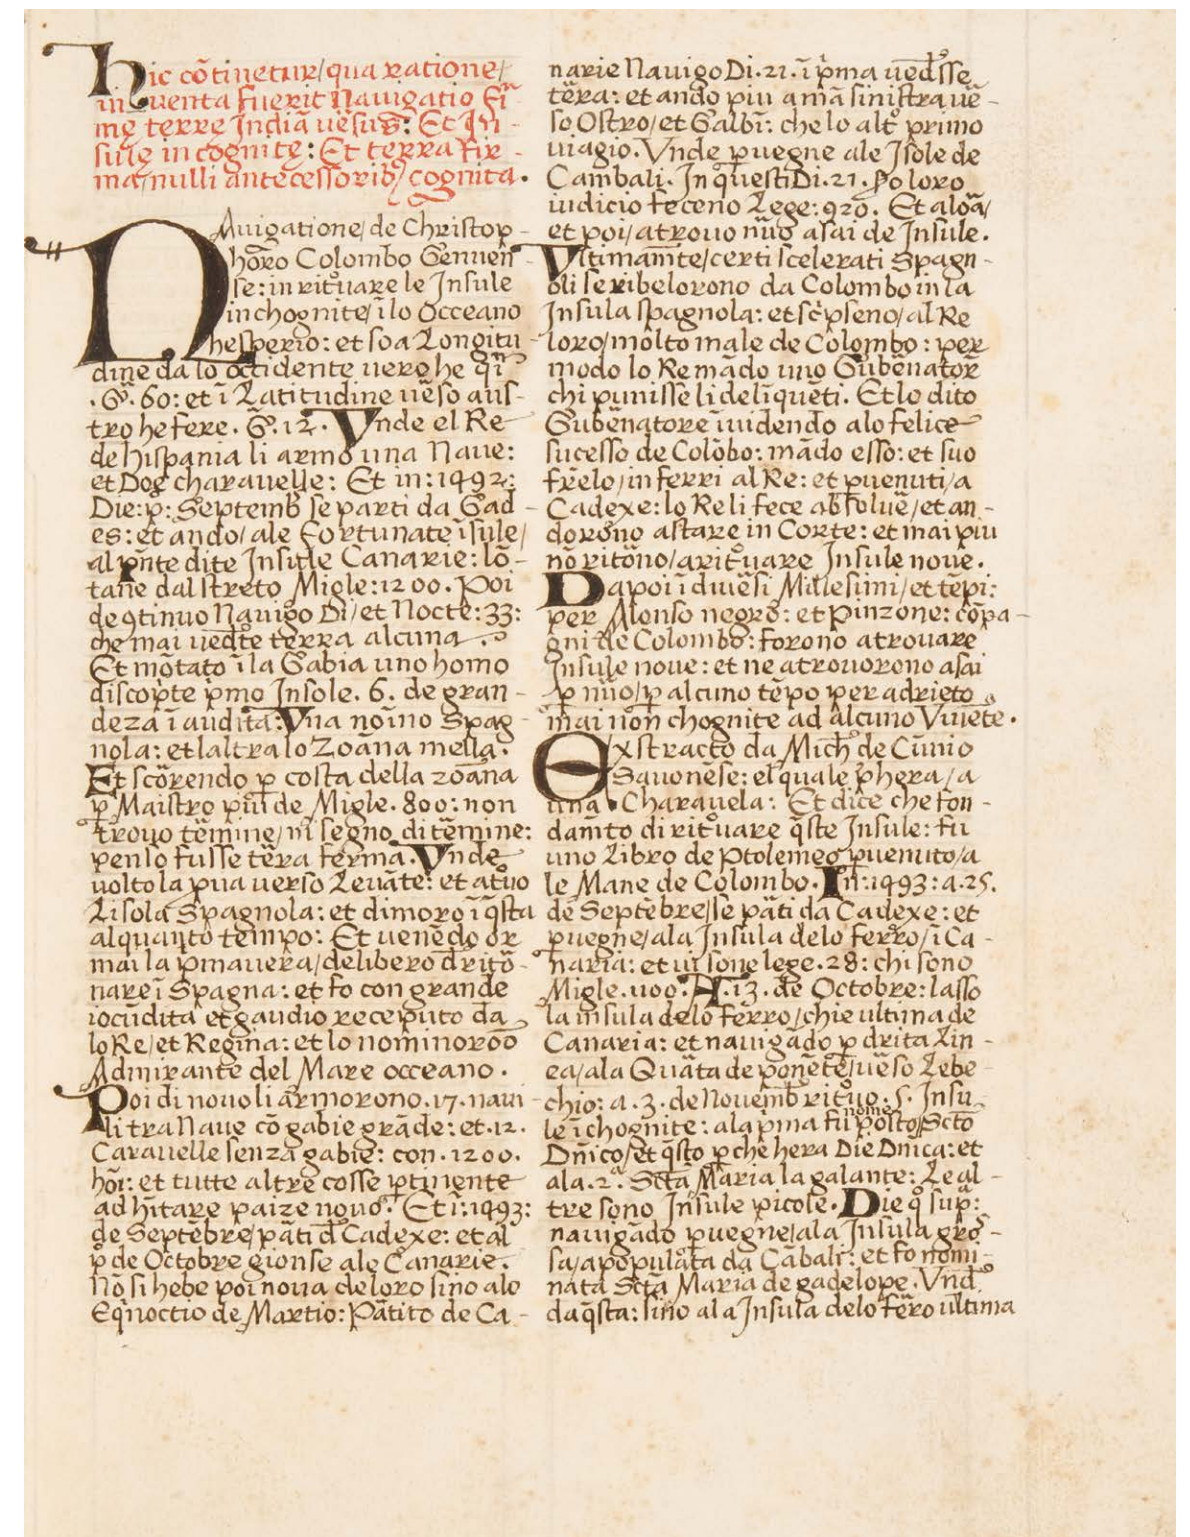 Hic cõtinetur/qua ratione/
inuenta fuerit Nauigatio fĩ-
mę terre Indiã uẽsus: Et In-
sulę incognitę: Et terra Fir-
ma/nulli antecessorib9/ cognita.
NAuigatione/de Christop-
hõro Colombo Genuen-
se: in rit°uare le Insule
inchognite/ ĩ lo Occeano
hesperio: et so a Longitu
dine da lo occidente uero he qĩ
.G. 60: et ĩ Latitudine uẽso aus-
tro he fere. G. 12. Vnde el Re
de hispania li armo una Naue:
et Doe charauelle: Et in: 1492:
Die: p: Septemb se parti da Gad-
es: et ando/ ale Fortunate ĩsule/
al pñte dite Insule Canarie: lõ-
tane dal streto Migle: 1200. Poi
de 9tinuo Nauigo Di/ et Nocte: 33:
che mai uedte terra alcuna.
Et mõtato ĩ la Gabia uno homo
discopte pmo Insole. 6. de gran-
deza ĩ audita: Vna noĩno Spag-
nola: et laltra lo Zoãna mella.
Et scõrendo p costa della zoãna
p Maistro piu de Migle. 800: non
trouo tẽmine/ nĩ segno di tẽmine:
penso fusse tẽra ferma. Vnde
uolto la pua uerso Leuãte: et at°uo
Lisola Spagnola: et dimoro ĩ q̃sta
alquanto tempo: Et uenẽdo or
mai la pmauera/ delibero d ritõ-
nare ĩ Spagna: et fo con grande
iocũdita et gaudio receputo da
lo Re/et Regina: et lo nominoroō
Admirante del Mare occeano.
Poi di nouo li armorono. 17. naui
li tra Naue cõ gabie grãde: et. 12.
Carauelle senza gabie: con. 1200.
hõĩ: et tutte altre cosse ptinente
ad hĩtare paize nouo. Et ĩ: 1493:
de Septẽbre/ pãti d Cadexe: et al
p° de Octobre gionse ale Canarie.
Nõ si hebe poi noua de loro sino alo
Eq̃noctio de Martio: Pãtito de Ca-
narie Nauigo Di. 21. ĩ pma uedesse
tẽra: et ando piu a mã sinistra uẽ-
so Ostro/et Galbĩ: che lo alt° primo
uiagio. Vnde puegne ale Isole de
Cambali. In questi Di. 21. Po loro
iudicio feceno Lege: 920. Et aloã/
et poi/ atrouo nũo asai de Insule.
Vltimamte/certi scelerati Spagn-
oli se ribelorono da Colombo in la
Insula spagnola: et scpseno/ al Re
loro/ molto male de Colombo: per
modo lo Re mãdo uno Gubẽnatõr
chi punisse li deliquẽti. Et lo dito
Gubẽnatore ĩuidendo alo felice
sucesso de Colõbo: mãdo esso: et suo
frẽlo/ in ferri al Re: et puenuti/a
Cadexe: lo Re li fece absoluẽ/et an-
dorono astare in Corte: et mai piu
nõ ritõno/ arit°uare Insule noue.
Da poi ĩ diuẽsi Millesimi/et tẽpi:
per Alonso negro: et Pinzone: cõpa-
gni de Colombo: forono atrouare
Insule noue: et ne atrouorono asai
p nũo/ p alcuno tẽpo per adrieto
mai non chognite ad alcuno Viuẽte.
Exstracto da Mich° de Cũnio
Sauonẽse: el quale phera/ a
una Charauela: Et dice che fon-
damto di rit°uare q̃ste Insule: fu
uno Libro de Ptolemeo puenuto/a
le Mane de Colombo. In: 1493: a. 25.
de Septẽbre/se pãti da Cadexe: et
puegne/ala Insula delo Ferro/ ĩ Ca-
naria: et ui sone lege. 28: chi sono
Migle. 1100. A. 13. de Octobre: lasso
la insula delo Ferro/ chi e ultima de
Canaria: et nauigãdo p drita Lin-
ea/ala Quãta de ponẽte/uẽso Lebe-
chio: a. 3. de Nouemb rit°uo. 5. Insu
le ĩchognite: ala pma fu posto nome Scto
Dñico/et q̃sto p che hera Die Dnica: et
ala. 2ª. Sctã Maria la galante: Le al-
tre sono Insule picole. Die q° sup:
nauigãdo puegne/ala Insula gro-
sa/apopulata da Cãbali: et fo nomi-
nata Sctã Maria de gadelope. Vnd°
da q̃sta: sino ala Insula delo fẽro ultima